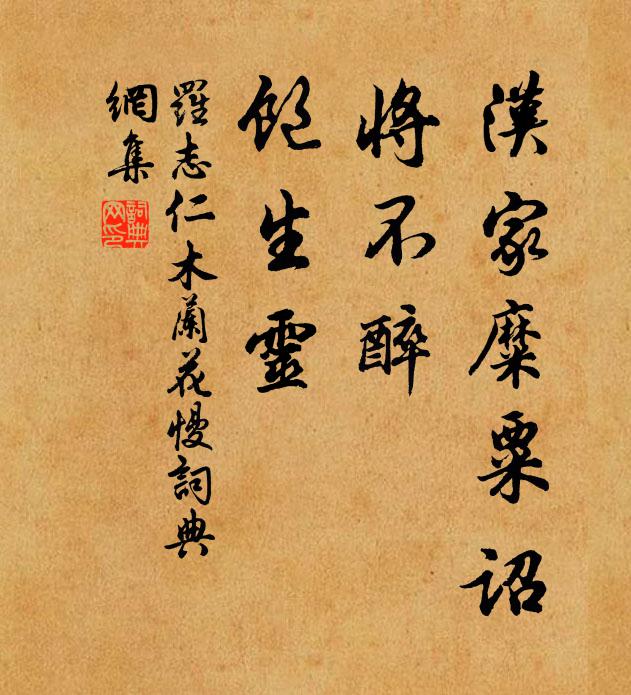 漢家糜粟詔
將不醉
飽生靈
羅志仁木蘭花慢詞典
網集
詞典
网印